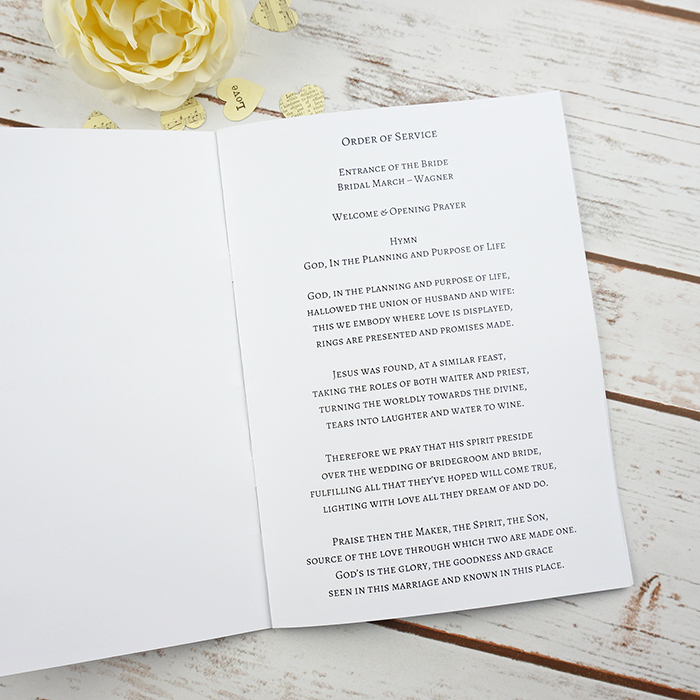 Love
Order of Service
Entrance of the Bride
Bridal March – Wagner
Welcome & Opening Prayer
Hymn
God, In the Planning and Purpose of Life
God, in the planning and purpose of life,
hallowed the union of husband and wife:
this we embody where love is displayed,
rings are presented and promises made.
Jesus was found, at a similar feast,
taking the roles of both waiter and priest,
turning the worldly towards the divine,
tears into laughter and water to wine.
Therefore we pray that his spirit preside
over the wedding of bridegroom and bride,
fulfilling all that they've hoped will come true,
lighting with love all they dream of and do.
Praise then the Maker, the Spirit, the Son,
source of the love through which two are made one.
God's is the glory, the goodness and grace
seen in this marriage and known in this place.